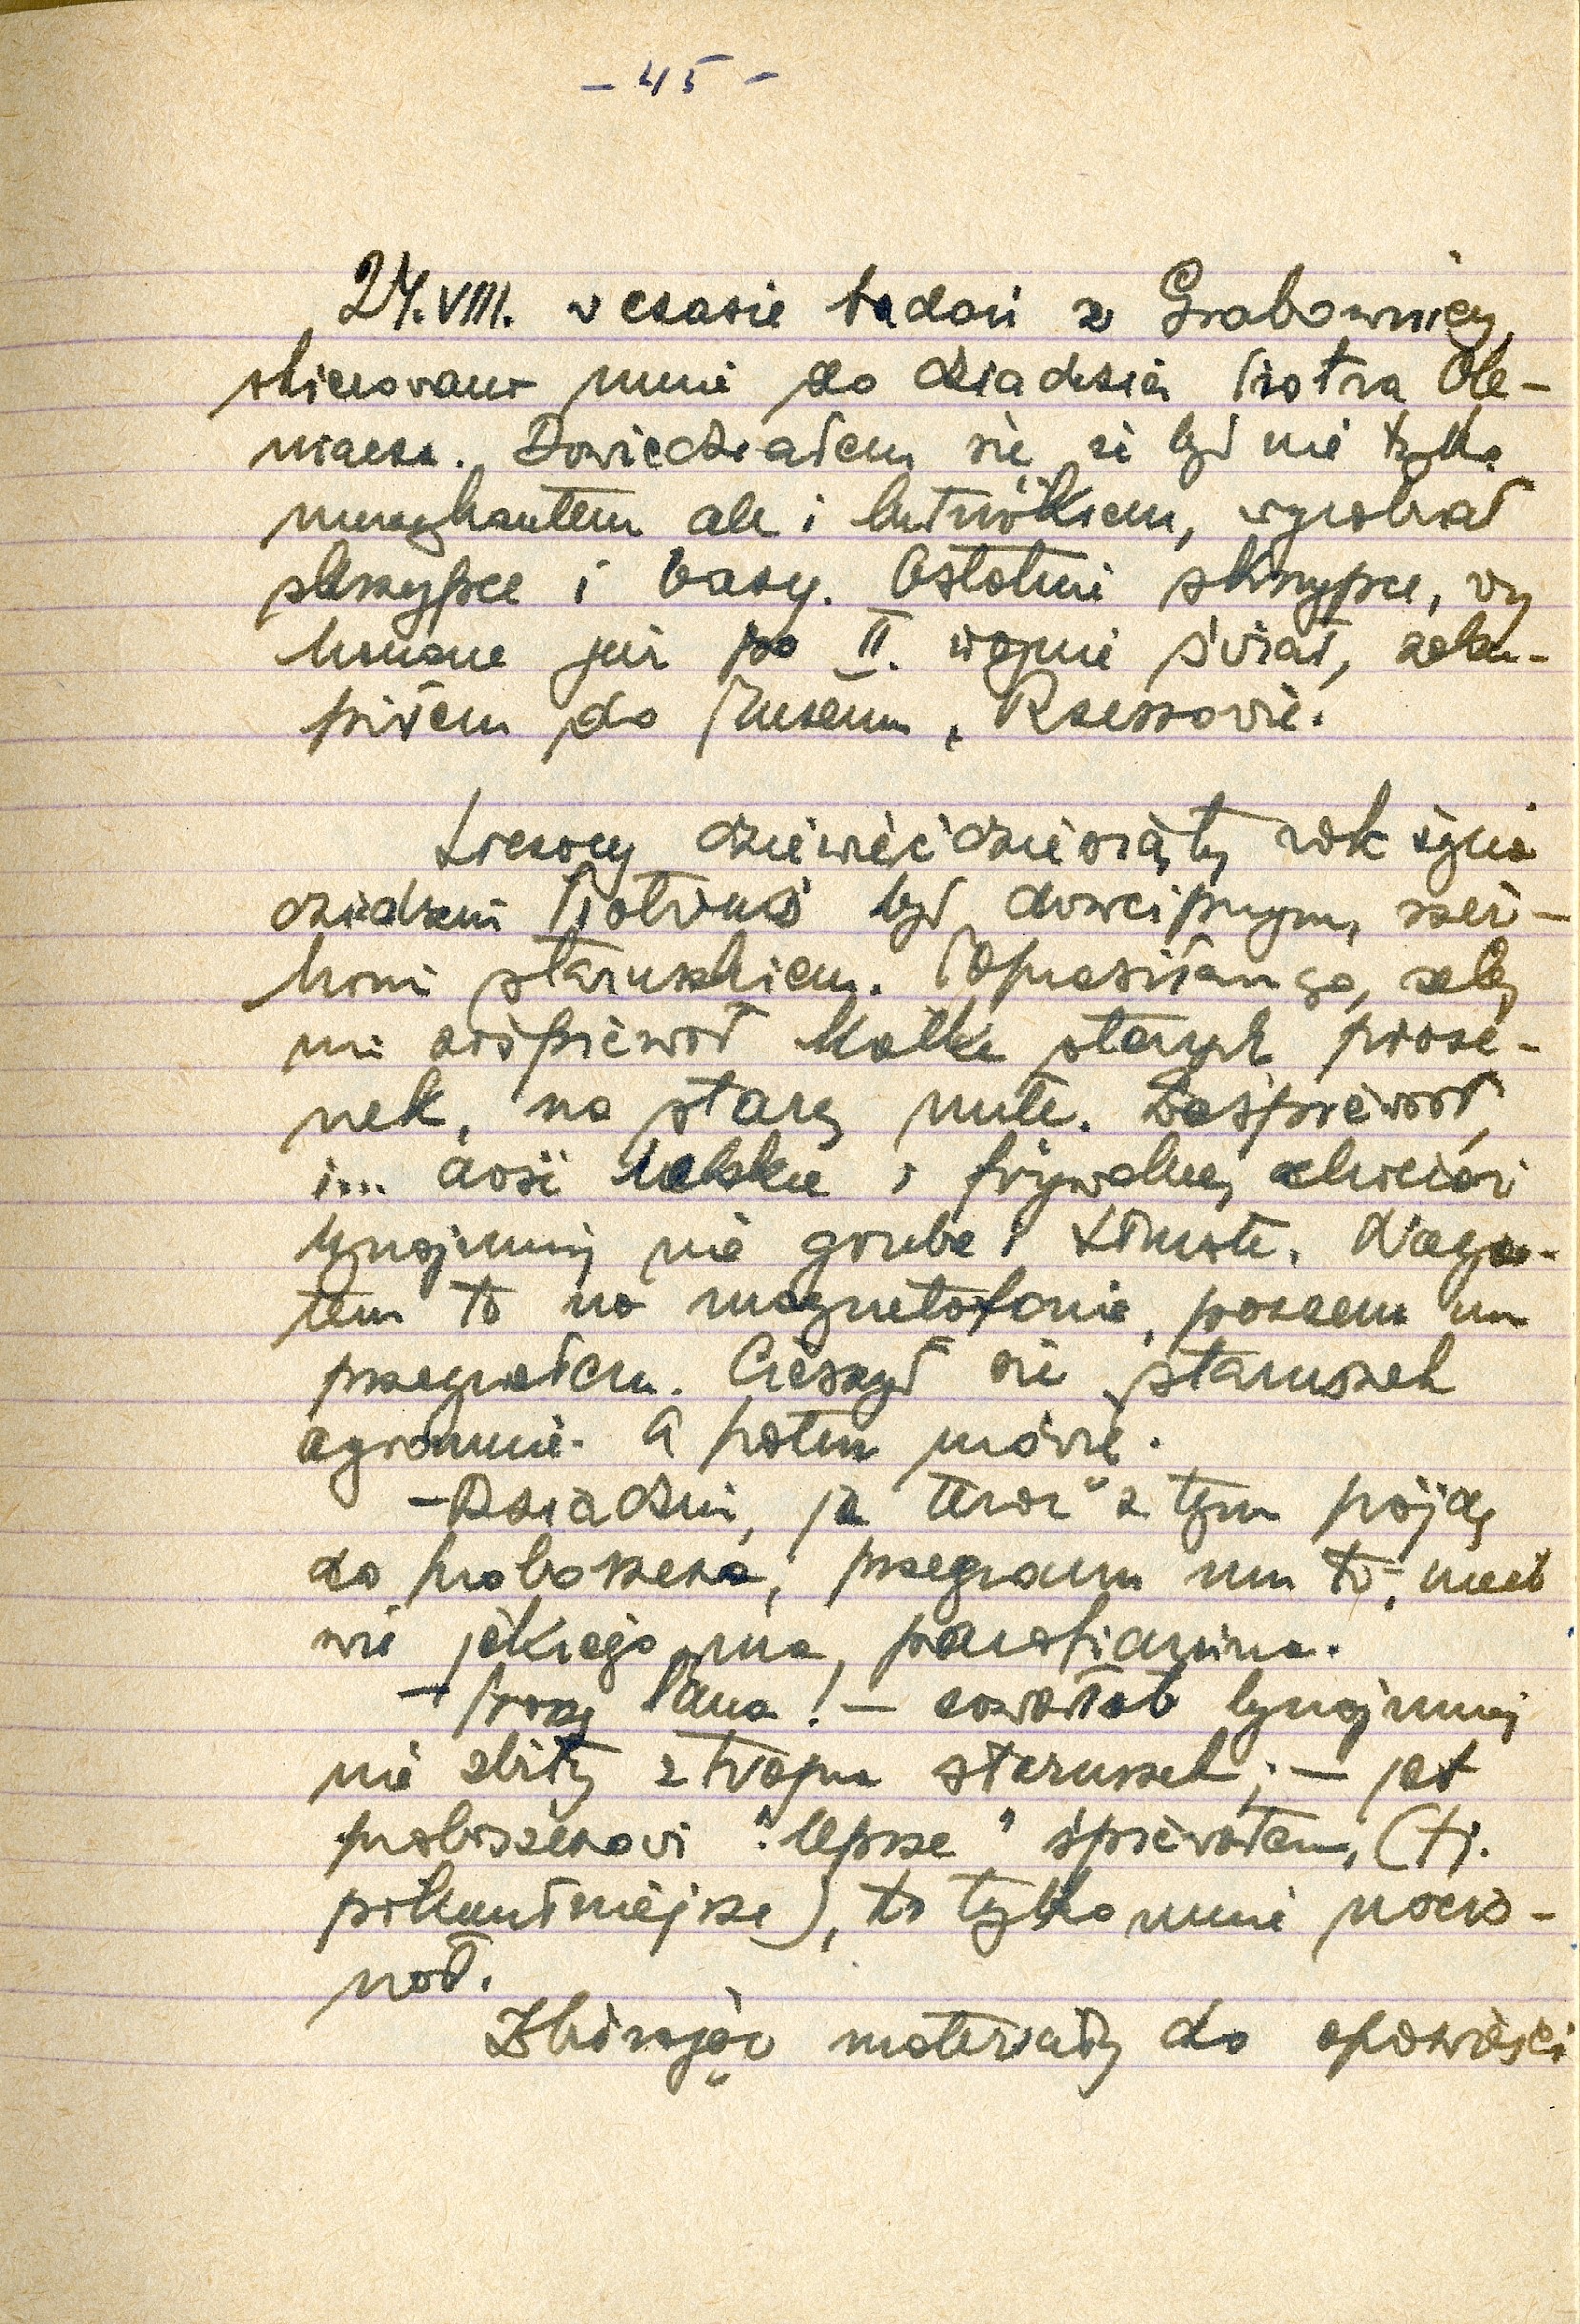 - 45 -
24.VIII. w czasie badań w Grabownicy
skierowano mnie do dziadzia Piotra Ole-
niacza. Dowiedziałem się że był nie tylko
muzykantem ale i lutnikiem, wyrabiał
skrzypce i basy. Ostatnie skrzypce, wy
konane już po II. wojnie świat, zaku-
piłem do Muzeum w Rzeszowie.
Liczący dziewięćdziesiąty rok życia
dziadzio Piotruś był dowcipnym, szer-
kim staruszkiem. Poprosiłem go, żeby
mi zaśpiewał kilka starych piose-
nek, na starą nutę. Zaśpiewał,
i... dość lekkie i frywolne, chociaż
bynajmniej nie grube i tłuste. Nagra-
łem to na magnetofonie, potem mu
przegrałem. Cieszył się staruszek
ogromnie. A potem mówię.
- Dziadziu, ja teraz z tym pójdę
do proboszcza, przegram mu to, niech
wie jakiego ma, parafianina.
- Proszę Pana! - zawołał bynajmniej
nie zbity z tropu staruszek; - jak
proboszczowi "lepsze" śpiewałem, (tj.
pikantniejsze), to tylko mnie pocio-
noł.
Zbierając materiały do opowieści